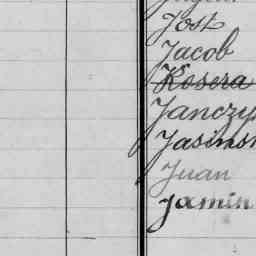 Jost
Jacob
Kosera
Janczy
Jasinsk
Juan
Jamin